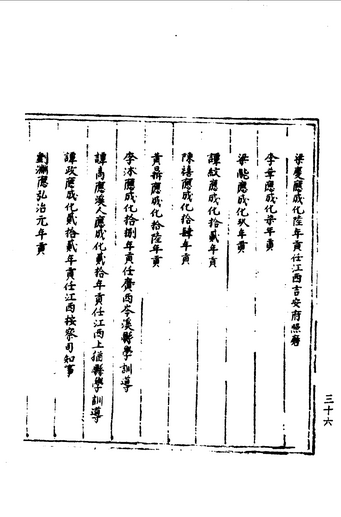 梁慶應成化陸年貢任江西吉安府照磨
李華應成化柒年貢
梁能應成化玖年貢
譚紋應成化拾貳年貢
陳禧應成化拾肆年貢
黃彛應成化拾陸年貢
李沐應成化拾捌年貢任廣西岑溪縣學訓導
譚高應溪人應成化貳拾年貢任江西上猶縣學訓導
譚政應成化貳拾貳年貢任江西按察司知事
劉瀾應弘治元年貢
三十六